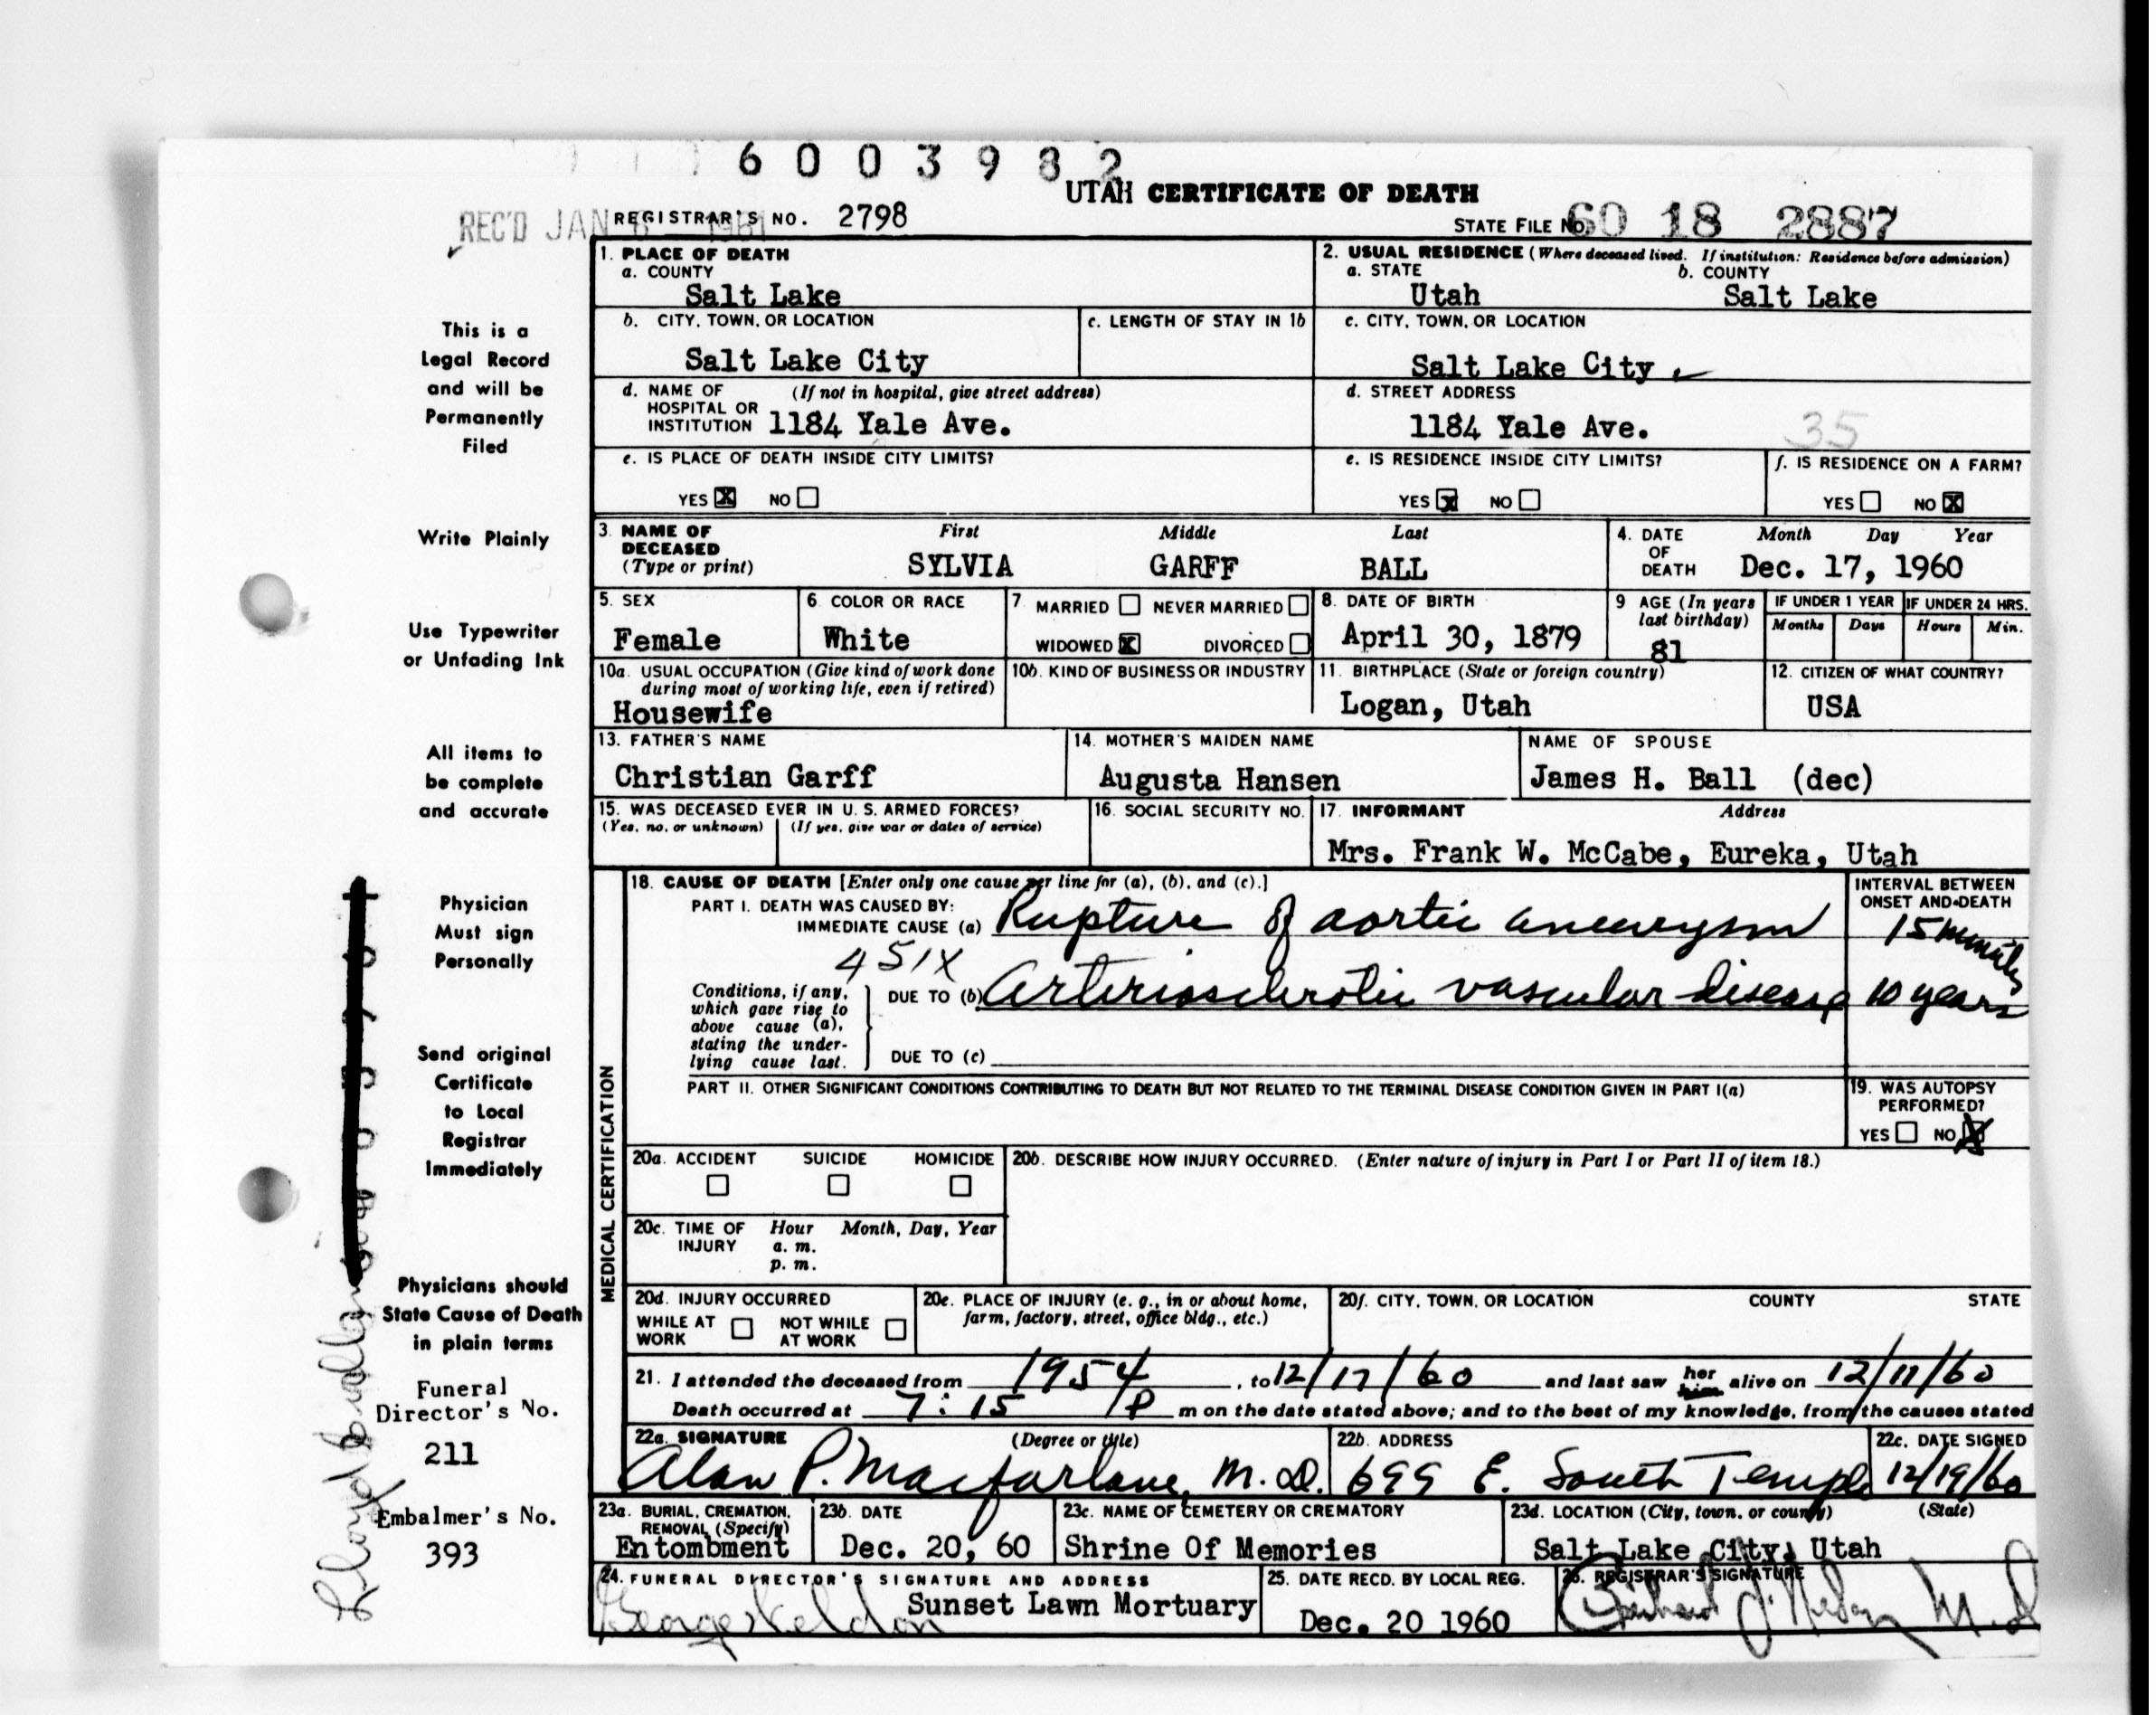 6 0 0 3 9 8 2
UTAH CERTIFICATE OF DEATH
REC'D JAN 6 1961
REGISTRAR'S NO. 2798
STATE FILE No. 60 18 2887
This is a
Legal Record
and will be
Permanently
Filed
Write Plainly
Use Typewriter
or Unfading Ink
All items to
be complete
and accurate
Physician
Must sign
Personally
Send original
Certificate
to Local
Registrar
Immediately
Physicians should
State Cause of Death
in plain terms
Funeral
Director's No.
211
Embalmer's No.
393
1. PLACE OF DEATH
a. COUNTY
Salt Lake
2. USUAL RESIDENCE (Where deceased lived. If institution: Residence before admission)
a. STATE b. COUNTY
Utah Salt Lake
b. CITY, TOWN, OR LOCATION
Salt Lake City
c. LENGTH OF STAY IN 1b
c. CITY, TOWN, OR LOCATION
Salt Lake City
d. NAME OF (If not in hospital, give street address)
HOSPITAL OR
INSTITUTION 1184 Yale Ave.
d. STREET ADDRESS
1184 Yale Ave. 35
e. IS PLACE OF DEATH INSIDE CITY LIMITS?
YES X NO
e. IS RESIDENCE INSIDE CITY LIMITS?
YES X NO
f. IS RESIDENCE ON A FARM?
YES NO X
3. NAME OF First Middle Last
DECEASED
(Type or print) SYLVIA GARFF BALL
4. DATE Month Day Year
OF
DEATH Dec. 17, 1960
5. SEX
Female
6. COLOR OR RACE
White
7. MARRIED NEVER MARRIED
WIDOWED X DIVORCED
8. DATE OF BIRTH
April 30, 1879
9 AGE (In years
last birthday)
81
IF UNDER 1 YEAR IF UNDER 24 HRS.
Months Days Hours Min.
10a. USUAL OCCUPATION (Give kind of work done
during most of working life, even if retired)
Housewife
10b. KIND OF BUSINESS OR INDUSTRY
11. BIRTHPLACE (State or foreign country)
Logan, Utah
12. CITIZEN OF WHAT COUNTRY?
USA
13. FATHER'S NAME
Christian Garff
14. MOTHER'S MAIDEN NAME
Augusta Hansen
NAME OF SPOUSE
James H. Ball (dec)
15. WAS DECEASED EVER IN U. S. ARMED FORCES?
(Yes, no, or unknown) (If yes, give war or dates of service)
16. SOCIAL SECURITY NO.
17. INFORMANT Address
Mrs. Frank W. McCabe, Eureka, Utah
MEDICAL CERTIFICATION
18. CAUSE OF DEATH [Enter only one cause per line for (a), (b), and (c).]
PART I. DEATH WAS CAUSED BY:
IMMEDIATE CAUSE (a) Rupture of aortic aneurysm
INTERVAL BETWEEN
ONSET AND DEATH
15 minutes
451X
Conditions, if any,
which gave rise to
above cause (a),
stating the under-
lying cause last.
DUE TO (b) Arteriosclerotic vascular disease 10 years
DUE TO (c)
PART II. OTHER SIGNIFICANT CONDITIONS CONTRIBUTING TO DEATH BUT NOT RELATED TO THE TERMINAL DISEASE CONDITION GIVEN IN PART I(a)
19. WAS AUTOPSY
PERFORMED?
YES NO X
20a. ACCIDENT SUICIDE HOMICIDE
20b. DESCRIBE HOW INJURY OCCURRED. (Enter nature of injury in Part I or Part II of item 18.)
20c. TIME OF Hour Month, Day, Year
INJURY a. m.
p. m.
20d. INJURY OCCURRED
WHILE AT NOT WHILE
WORK AT WORK
20e. PLACE OF INJURY (e. g., in or about home,
farm, factory, street, office bldg., etc.)
20f. CITY, TOWN, OR LOCATION COUNTY STATE
21. I attended the deceased from 1954, to 12/17/60 and last saw her him alive on 12/17/60
Death occurred at 7:15 P m on the date stated above; and to the best of my knowledge, from the causes stated
22a. SIGNATURE (Degree or title)
Alan P. Macfarlane, M.D.
22b. ADDRESS
699 E. South Temple
22c. DATE SIGNED
12/19/60
23a. BURIAL, CREMATION,
REMOVAL (Specify)
Entombment
23b. DATE
Dec. 20, 60
23c. NAME OF CEMETERY OR CREMATORY
Shrine Of Memories
23d. LOCATION (City, town, or county) (State)
Salt Lake City, Utah
24. FUNERAL DIRECTOR'S SIGNATURE AND ADDRESS
Sunset Lawn Mortuary
25. DATE RECD. BY LOCAL REG.
Dec. 20 1960
26. REGISTRAR'S SIGNATURE